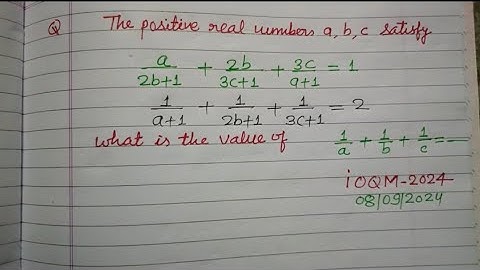 Q The positive real numbers a, b, c satisfy
a/(2b+1) + 2b/(3c+1) + 3c/(a+1) = 1
1/(a+1) + 1/(2b+1) + 1/(3c+1) = 2
what is the value of 1/a + 1/b + 1/c =
iOQM-2024
08/09/2024